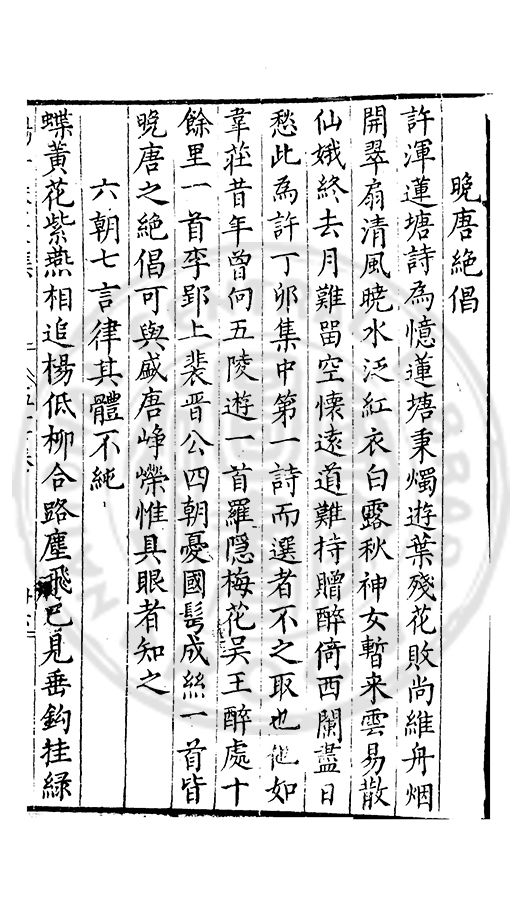 晚唐絶倡
許渾蓮塘詩為憶蓮塘秉燭遊葉殘花敗尚維舟烟
開翠扇清風曉水泛紅衣白露秋神女暫来雲易散
仙娥終去月難留空懷遠道難持贈醉倚西闌盡日
愁此為許丁卯集中第一詩而選者不之取也他如
韋莊昔年曾向五陵遊一首羅隠梅花吴王醉處十
餘里一首李郢上裴晋公四朝憂國鬂成絲一首皆
晚唐之絶倡可與盛唐崢嶸惟具眼者知之
六朝七言律其體不純
蝶黃花紫燕相追楊低柳合路塵飛已見垂鈎挂緑